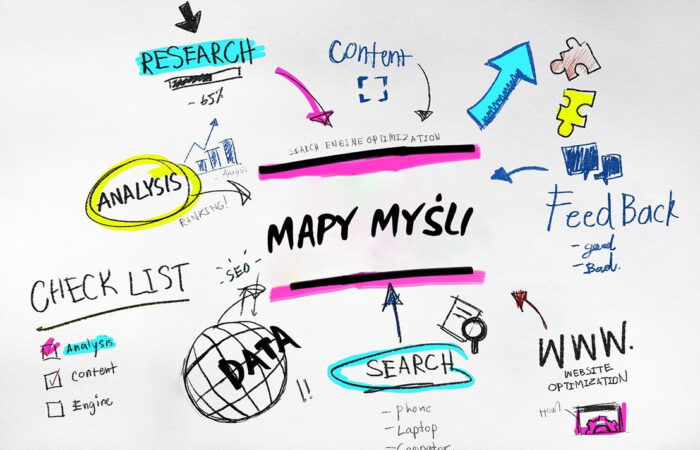 RESEARCH
-65%
Content
SEARCH ENGINE OPTIMIZATION
Analysis
ANALYSIS
RANKING!
MAPY MYŚLI
FeedBack
- good
- Bad.
SEO
CHECK LIST
Analysis
Content
Engine
DATA
!!
SEARCH
- phone
- Laptop
- Computer
WWW.
WEBSITE
OPTIMIZATION
HOW?